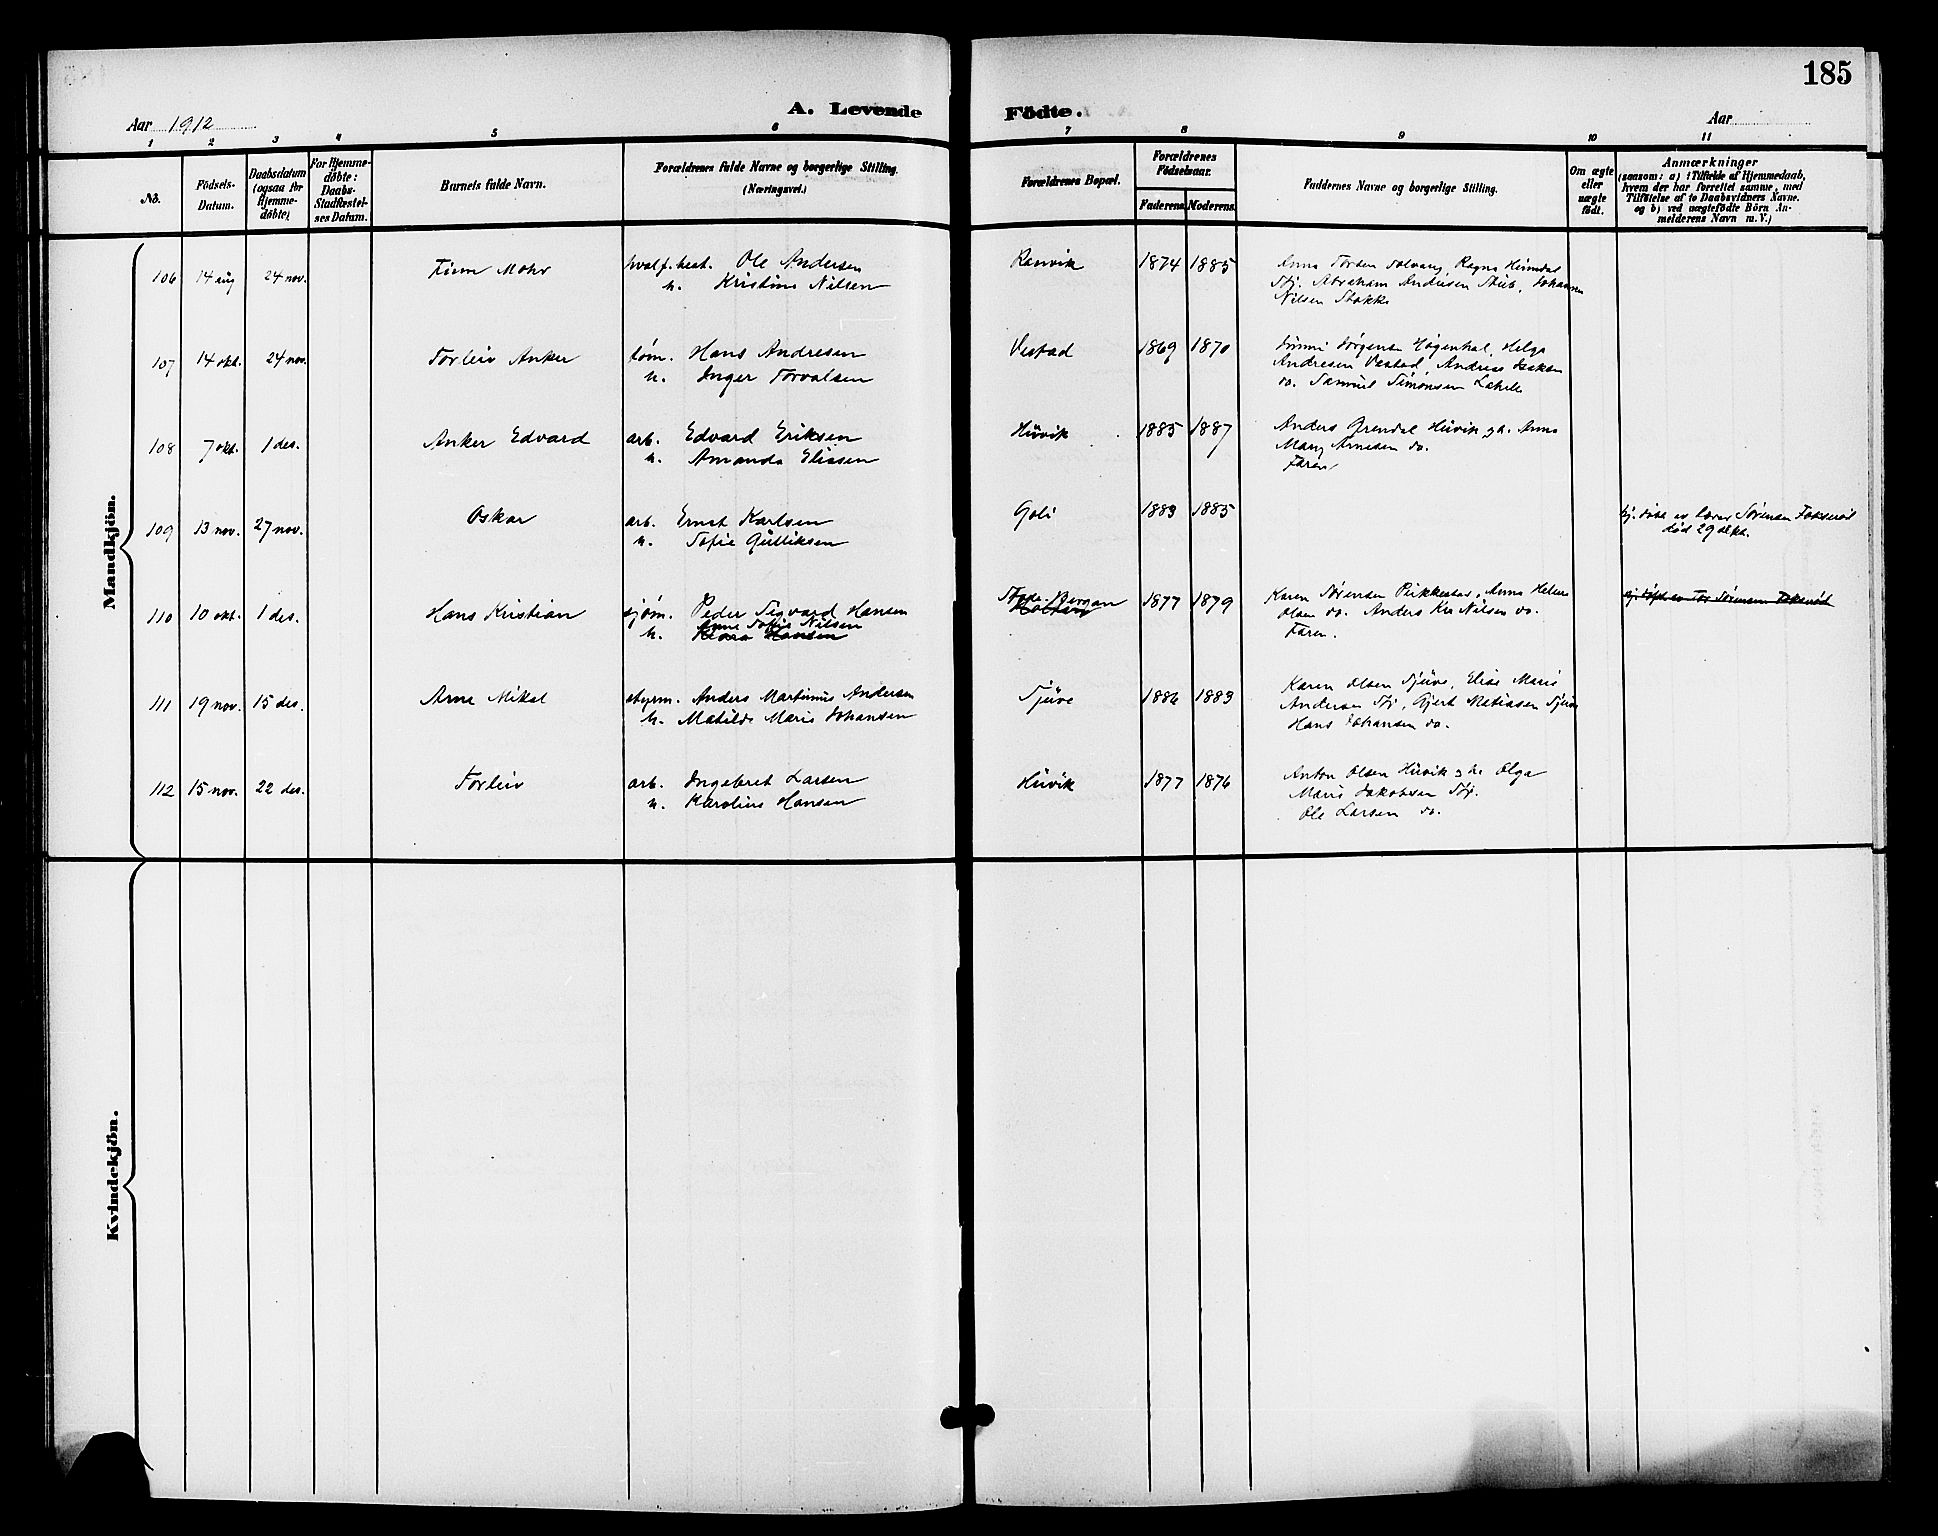 185
A. Levende Födte.
Aar 1912
Aar
1 2 3 4 5 6 7 8 9 10 11
No.
Födsels-Datum.
Daabsdatum (ogsaa for Hjemme-døbte)
For Hjemme-døbte: Daabs-Stadfæstel-ses Datum.
Barnets fulde Navn.
Forældrenes fulde Navne og borgerlige Stilling. (Næringsvei.)
Forældrenes Bopæl.
Forældrenes Födselsaar.
Faderens. Moderens.
Faddernes Navne og borgerlige Stilling.
Om ægte eller uægte födt.
Anmærkninger
(saasom: a) i Tilfælde af Hjemmedaab,
hvem der har forrettet samme, med
Tilføielse af to Daabsvidners Navne.
og b) ved uægtefödte Börn An-
melderens Navn m. V.)
Mandkjön.
106 14 aug 24 nov. Finn Mohr hvalf.best. Ole Andersen Ranvik 1874 1885
h. Kristine Nilsen
Anna Torsen Solvang, Ragna Heimdal
Tbj. Abraham Andersen Stub, Johannes
Nilsen Stokke
107 14 okt. 24 nov. Torleiv Anker tøm. Hans Andresen Vestad 1869 1870
h. Inger Torvalsen
Jørgensen Haugenhal, Helga
Andresen Vestad, Andreas Isaksen
do. Samuel Simonsen
108 7 okt. 1 des. Anker Edvard arb. Edvard Eriksen Huvik 1885 1887
h. Amanda Eliasen
Anders Grendal Huvik g h. Anna
Mary Arnesen do.
Faren
109 13 nov. 27 nov. Oskar arb. Ernst Karlsen Goli 1883 1885
h. Sofie Gulliksen
hj. døbt av lærer Sørensen Fokserød
død 29 okt.
110 10 okt. 1 des. Hans Kristian sjøm. Peder Sigvard Hansen Bergan 1877 1879
Anne Sofie Nilsen
h. Klara Hansen
Karen Sørensen Pirkkestad, Anna Helene
Olsen do. Anders Kr. Nilsen do.
Faren.
hj. døpt av Tor Sørensen Fokserød
111 19 nov. 15 des. Arne Mikal styrm. Anders Martinius Andersen Tjuve 1886 1883
h. Matilde Marie Johansen
Karen Olsen Tjuve, Elise Marie
Andersen Tbj, Gjert Matiasen Tjuve
Hans Johansen do.
112 15 nov. 22 des. Torleiv arb. Ingebret Larsen Huvik 1877 1876
h. Karoline Hansen
Anton Olsen Huvik g h. Olga
Marie Jakobsen Tbj.
Ole Larsen do.
Kvindekjön.